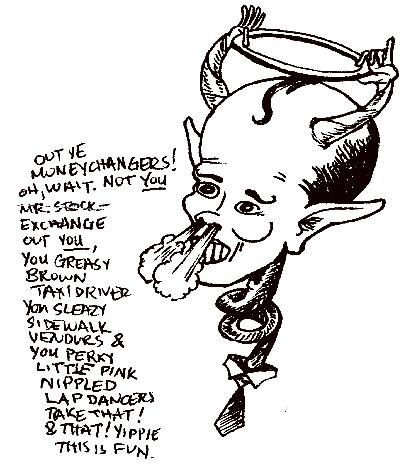 OUT YE
MONEYCHANGERS!
OH, WAIT. NOT YOU
MR. STOCK-
EXCHANGE
OUT YOU,
YOU GREASY
BROWN
TAXI DRIVER
YOU SLEAZY
SIDEWALK
VENDURS &
YOU PERKY
LITTLE PINK
NIPPLED
LAP DANCERS
TAKE THAT!
& THAT! YIPPIE
THIS IS FUN.